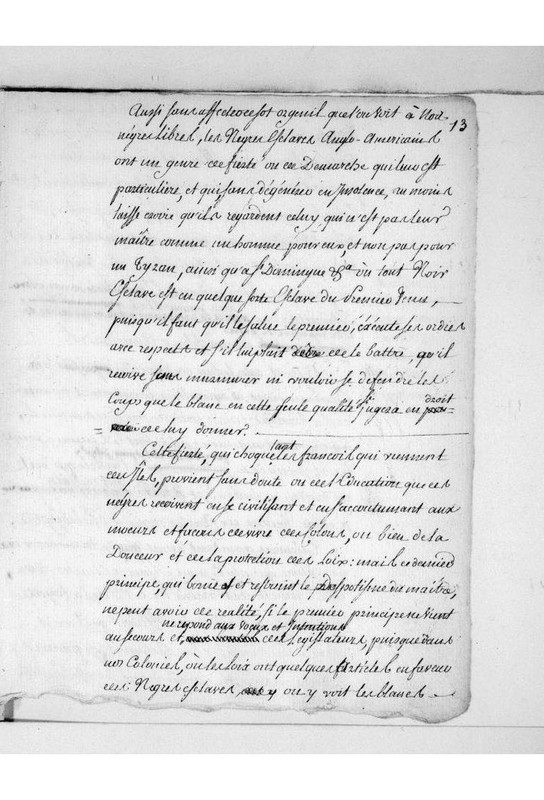 13
Aussi sans affecter ce sot orgeuil que l'on voit à nos
nègres libres, les Negres Esclaves Anglo-Americains
ont un genre de fierté ou de Demarche qui leur est
particuliere, et qui sans dégénérer en Insolence, au moins
laisse croire qu'ils regardent celuy qui n'est pas leur
maître comme un homme pour eux, et non pas pour
un Tyran, ainsi qu'a St. Domingue &a. où tout Noir
Esclave est en quelque sorte Esclave du Premier venu,
puisqu'il faut qu'il le salue le premier, éxécute ses ordres
avec respects et s'il luy plait de le battre, qu'il
reçoive sans murmurer ni vouloir se defendre les
Coups que le blanc en cette seule qualité jugera en droit
de luy donner.
Cette fierté, qui choque tant les francois qui viennent
des Isles, provient sans doute ou de l'Education que ces
nègres recoivent en se civilisant et en s'accoutumant aux
moeurs et facons de vivre des Colons, ou bien de la
Douceur et de la protection des Loix: mais ce dernier
principe, qui borne et restraint le Despotisme du maitre,
ne peut avoir de realité, si le premier principe ne vient
ne repond aux voeux et Intentions
au secours et, des Legislateurs, puisque dans
nos Colonies, où les Loix ont quelques Articles en faveur
des Negres esclaves, on y voit les blancs